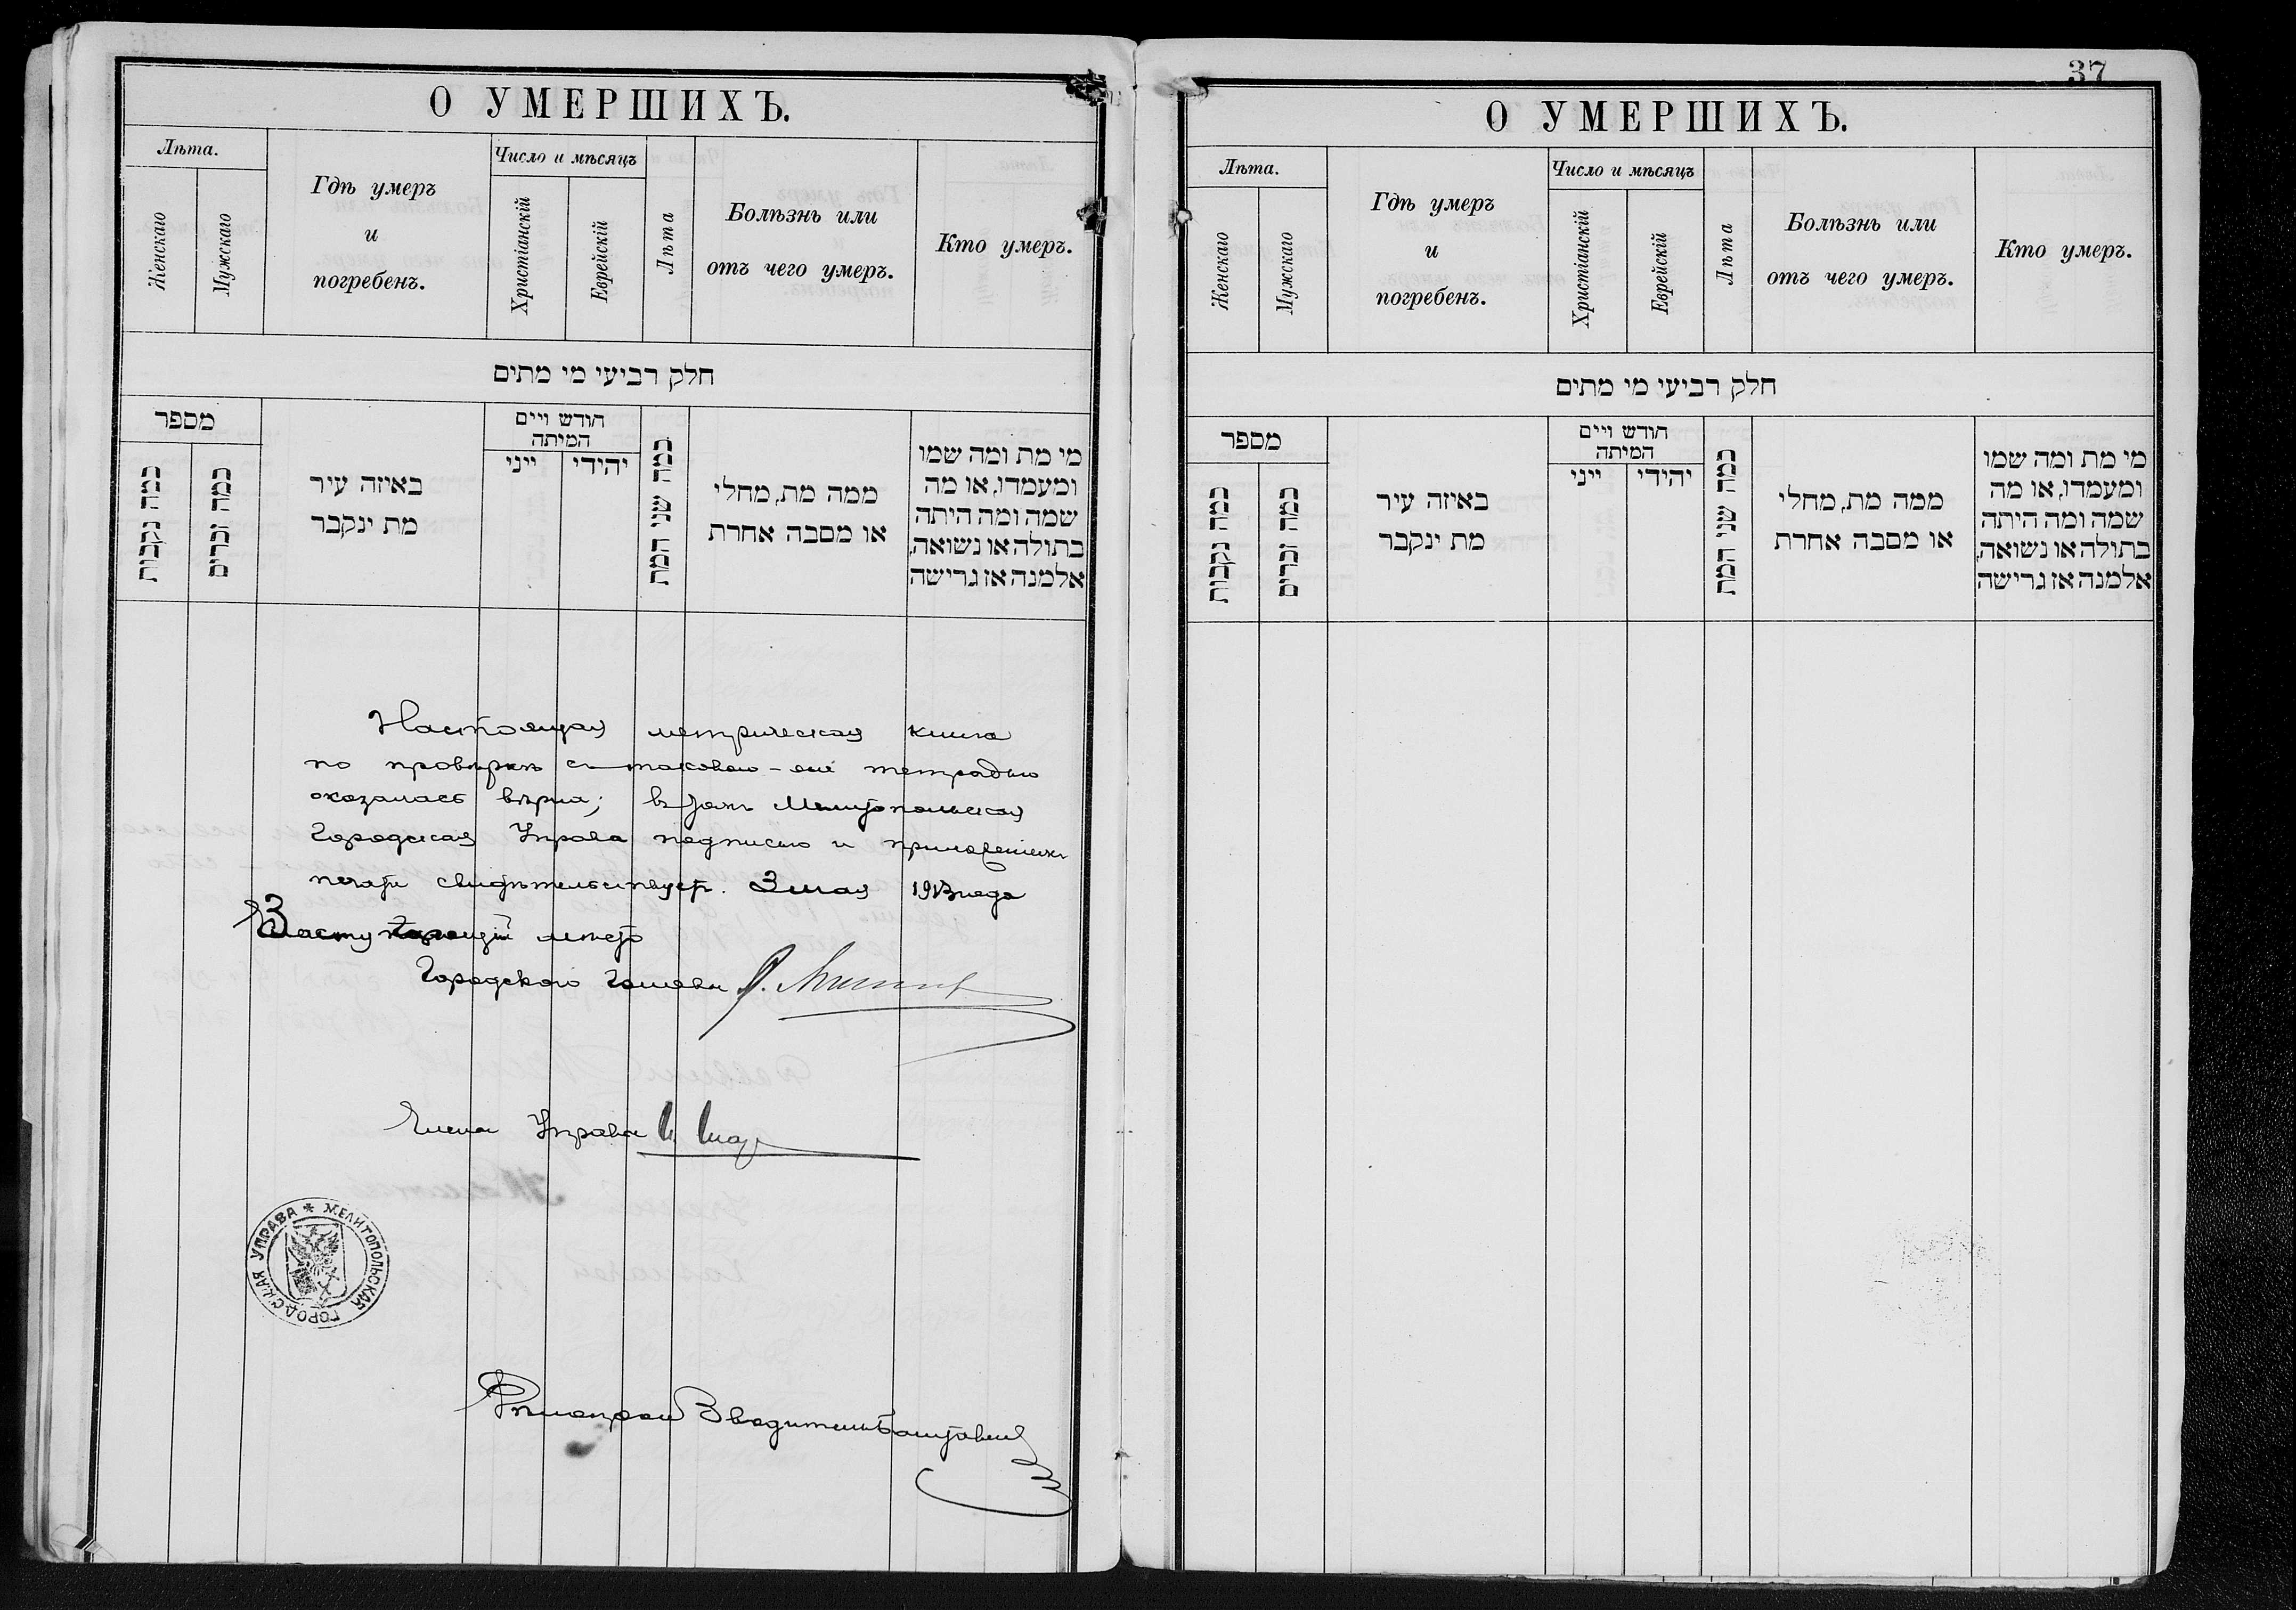 О УМЕРШИХЪ.
Лѣта.
Женскаго
Мужскаго
Гдѣ умеръ
и
погребенъ.
Число и мѣсяцъ
Христіанскій
Еврейскій
Лѣта
Болѣзнь или
отъ чего умеръ.
Кто умеръ.
חלק רביעי מי מתים
מספר
כמה נקבות
כמה זכרים
באיזה עיר
מת ינקבר
חודש ויים
המיתה
ייני
יהודי
כמה שני המת
ממה מת, מחלי
או מסבה אחרת
מי מת ומה שמו
ומעמדו, או מה
שמה ומה היתה
בתולה או נשואה,
אלמנה אז גרישה
Настоящая метрическая книга
по провѣркѣ съ таковою-же тетрадью
оказалась вѣрна; въ чемъ Мелитопольская
Городская Управа подписью и приложеніемъ
печати свидѣтельствуетъ. 3 мая 1913 года
Заступающій мѣсто
Городского Головы
Члена Управы
МЕЛИТОПОЛЬСКАЯ ГОРОДСКАЯ УПРАВА *
37
О УМЕРШИХЪ.
Лѣта.
Женскаго
Мужскаго
Гдѣ умеръ
и
погребенъ.
Число и мѣсяцъ
Христіанскій
Еврейскій
Лѣта
Болѣзнь или
отъ чего умеръ.
Кто умеръ.
חלק רביעי מי מתים
מספר
כמה נקבות
כמה זכרים
באיזה עיר
מת ינקבר
חודש ויים
המיתה
ייני
יהודי
כמה שני המת
ממה מת, מחלי
או מסבה אחרת
מי מת ומה שמו
ומעמדו, או מה
שמה ומה היתה
בתולה או נשואה,
אלמנה אז גרישה